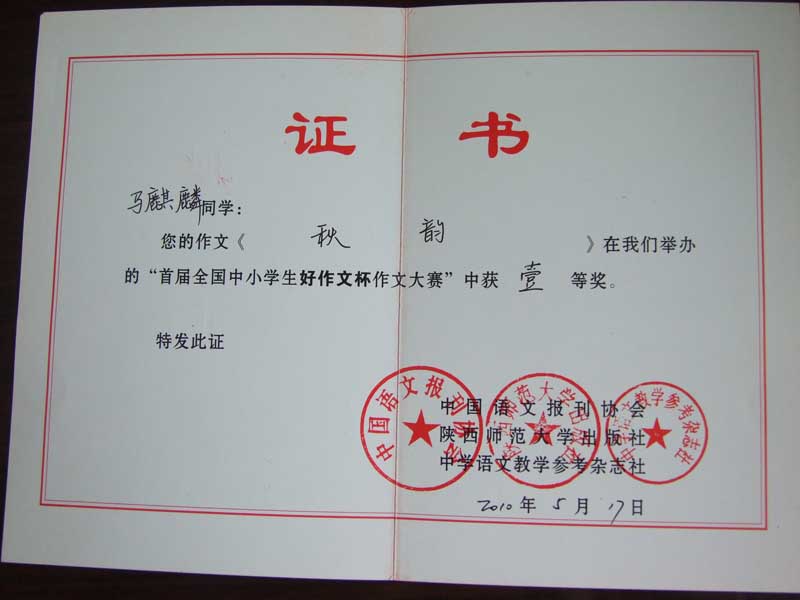 证 书
马麒麟同学：
您的作文《 秋 韵 》在我们举办
的“首届全国中小学生好作文杯作文大赛”中获 壹 等奖。
特发此证
中国语文报刊协会
陕西师范大学出版社
中学语文教学参考杂志社
2010年 5月 17日
中国语文报刊协会
陕西师范大学出版社
中学语文教学参考杂志社